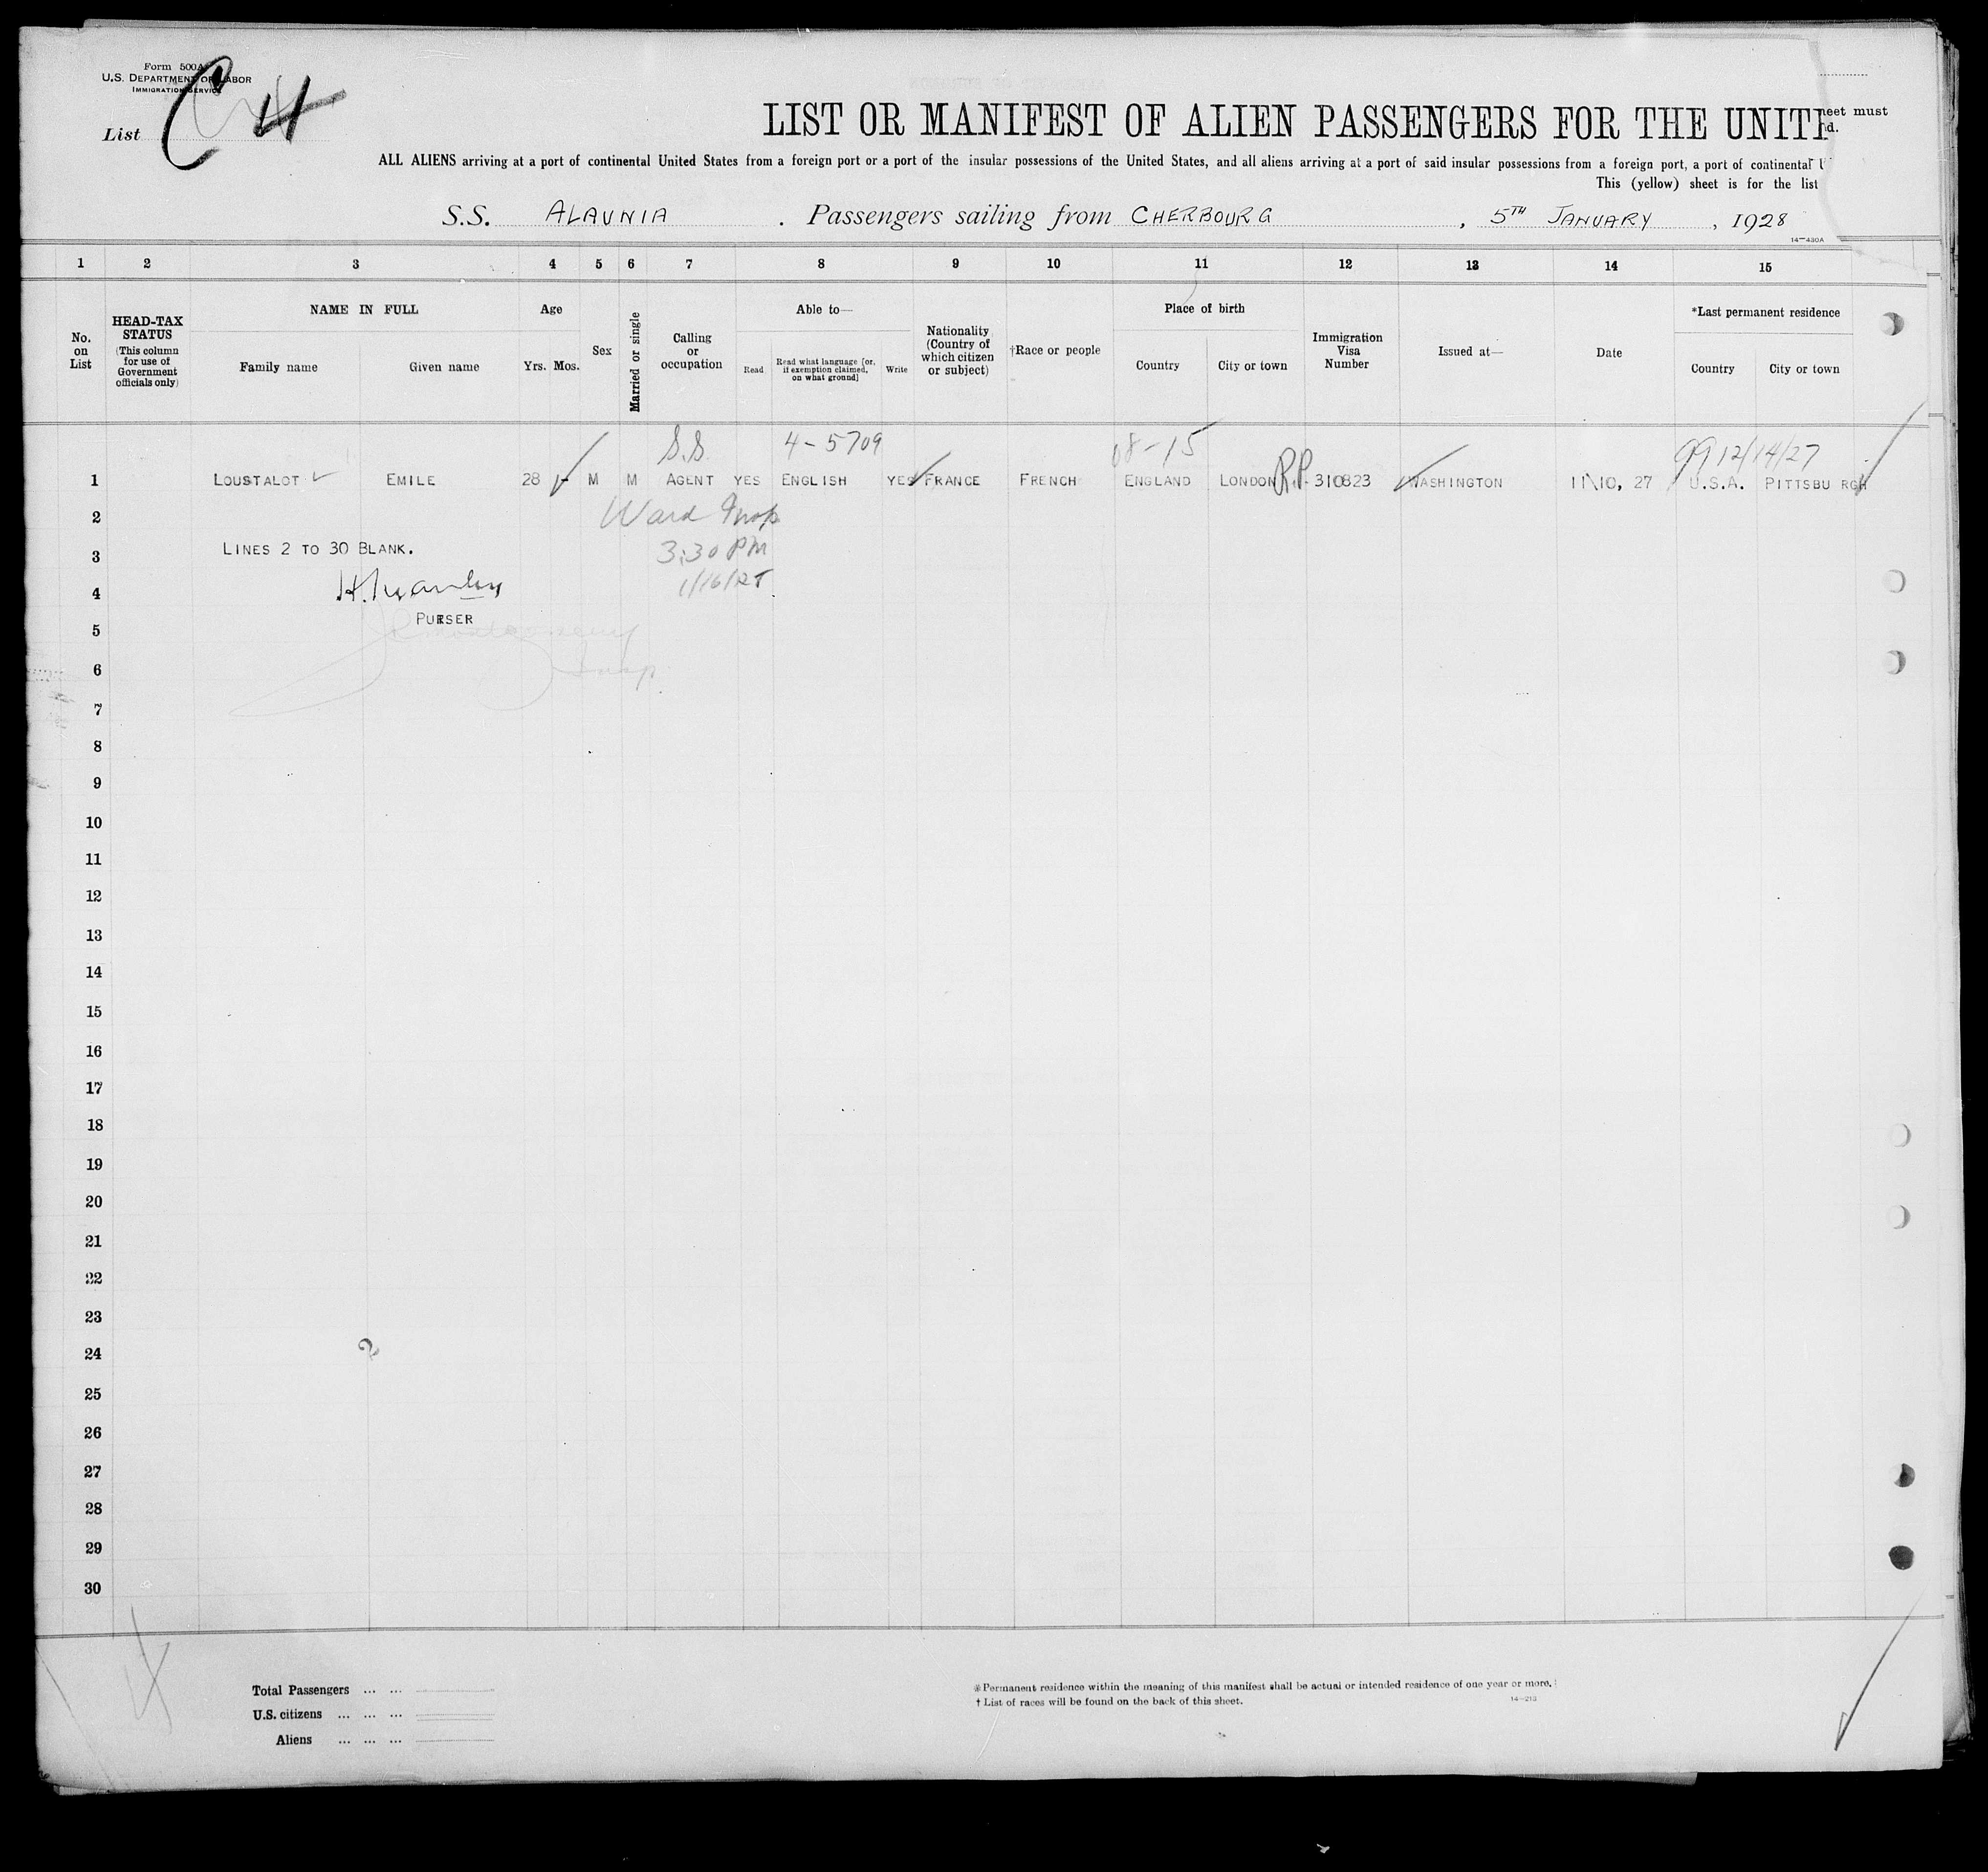 Form 500A
U.S. DEPARTMENT OF LABOR
IMMIGRATION SERVICE
List C 4
LIST OR MANIFEST OF ALIEN PASSENGERS FOR THE UNITE
neet must
d.
ALL ALIENS arriving at a port of continental United States from a foreign port or a port of the insular possessions of the United States, and all aliens arriving at a port of said insular possessions from a foreign port, a port of continental U
This (yellow) sheet is for the list
S.S. ALAUNIA . Passengers sailing from CHERBOURG , 5TH JANUARY , 1928
14—430A
1 2 3 4 5 6 7 8 9 10 11 12 13 14 15
No. on List
HEAD-TAX STATUS (This column for use of Government officials only)
NAME IN FULL
Family name Given name
Age
Yrs. Mos.
Sex
Married or single
Calling or occupation
Able to—
Read Read what language [or, if exemption claimed, on what ground] Write
Nationality (Country of which citizen or subject)
†Race or people
Place of birth
Country City or town
Immigration Visa Number
Issued at—
Date
*Last permanent residence
Country City or town
S.S. 4-5709 08-15 12/14/27
1 LOUSTALOT EMILE 28 - M M AGENT YES ENGLISH YES FRANCE FRENCH ENGLAND LONDON R.P. 310823 WASHINGTON 11\10, 27 U.S.A. PITTSBU RGH
2 Ward Insp
3 LINES 2 TO 30 BLANK. 3:30 PM
4
PURSER
5
6 Insp
7
8
9
10
11
12
13
14
15
16
17
18
19
20
21
22
23
24
25
26
27
28
29
30
Total Passengers ... ...
U.S. citizens ... ... ...
Aliens ... ... ...
* Permanent residence within the meaning of this manifest shall be actual or intended residence of one year or more.
† List of races will be found on the back of this sheet.
14—213